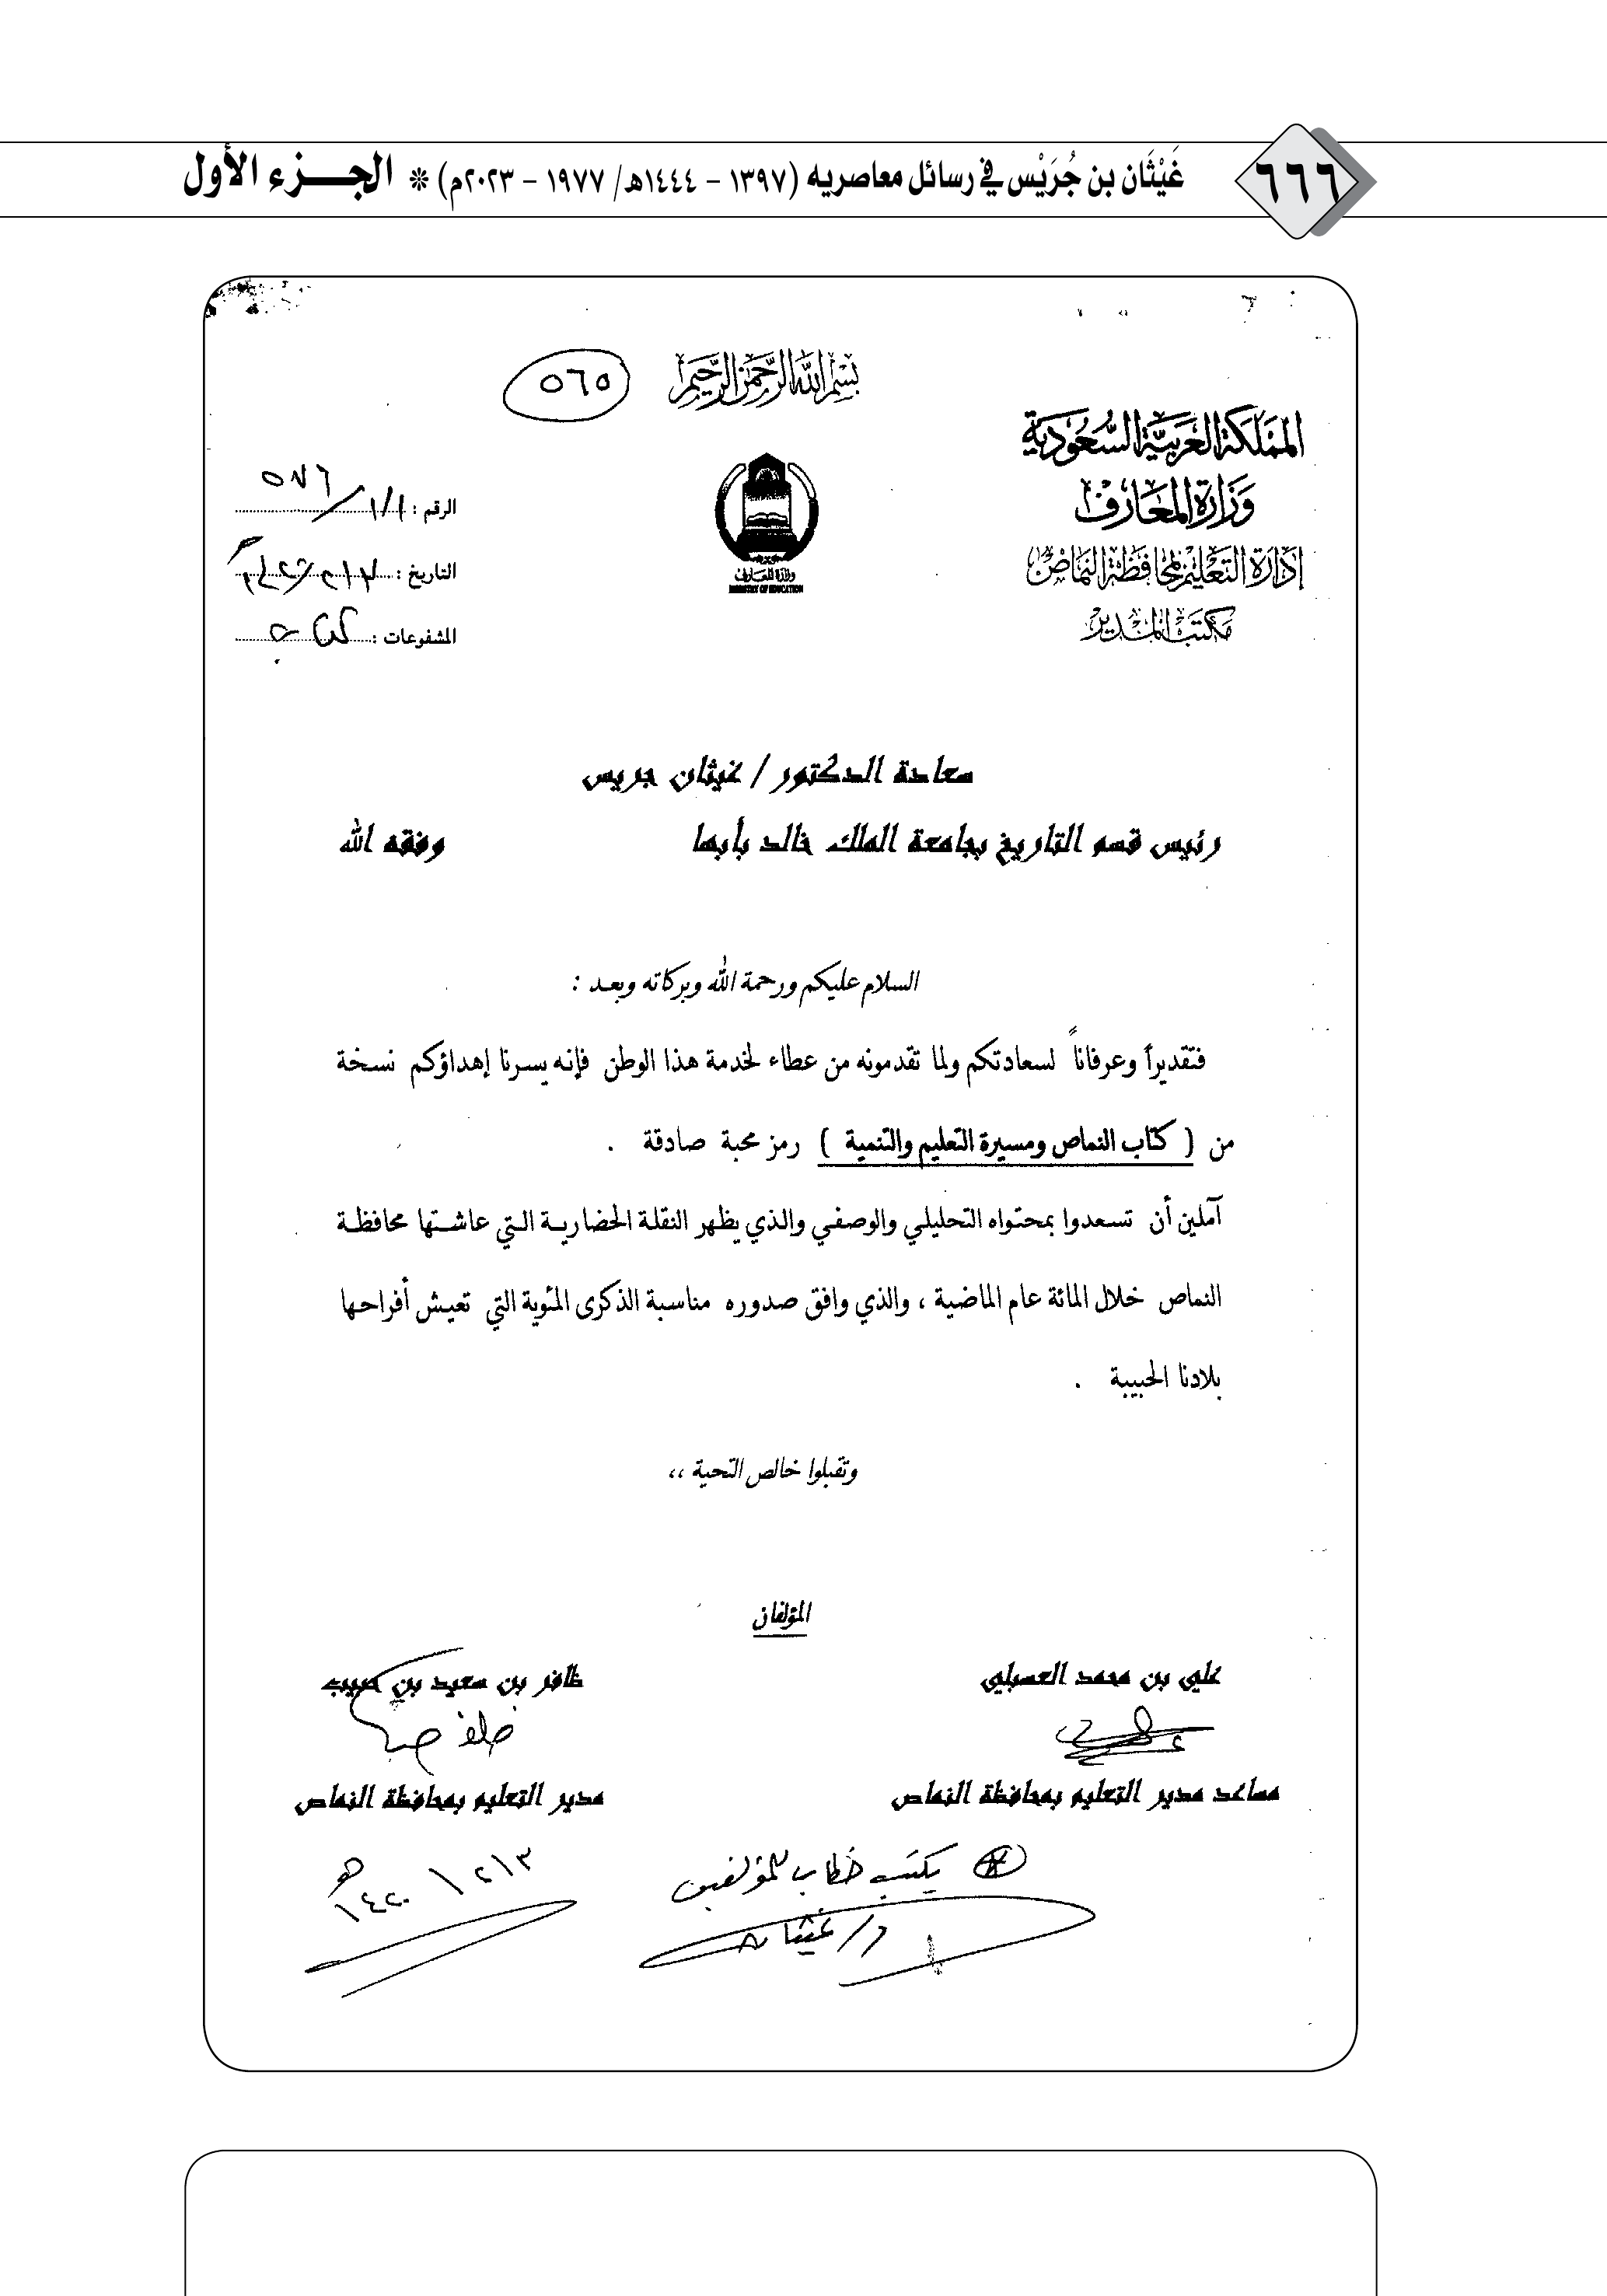 ٦٦٦
غَيْثَان بن جُرَيْس في رسائل معاصريه (١٣٩٧ – ١٤٤٤هـ/ ١٩٧٧ – ٢٠٢٣م) * الجـزء الأول
بسم الله الرحمن الرحيم
٥٦٥
المملكة العربية السعودية
وزارة المعارف
إدارة التعليم بمحافظة النماص
مكتب المدير
وزارة المعارف
MINISTRY OF EDUCATION
الرقم :
التاريخ :
المشفوعات : كتاب
سعادة الدكتور / غيثان جريس
رئيس قسم التاريخ بجامعة الملك خالد بأبها وفقه الله
السلام عليكم ورحمة الله وبركاته وبعد :
فتقديراً وعرفاناً لسعادتكم ولما تقدمونه من عطاء لخدمة هذا الوطن فإنه يسرنا إهداؤكم نسخة
من ( كتاب النماص ومسيرة التعليم والتنمية ) رمز محبة صادقة .
آملين أن تسعدوا بمحتواه التحليلي والوصفي والذي يظهر النقلة الحضارية التي عاشتها محافظة
النماص خلال المائة عام الماضية ، والذي وافق صدوره مناسبة الذكرى المئوية التي تعيش أفراحها
بلادنا الحبيبة .
وتقبلوا خالص التحية ،،
المؤلفان
علي بن محمد العسبلي ظافر بن سعيد بن حبيب
مساعد مدير التعليم بمحافظة النماص مدير التعليم بمحافظة النماص
يكتب خطاب للمؤلفين
د/ غيثان
١٣/٢/١٤٢٠هـ